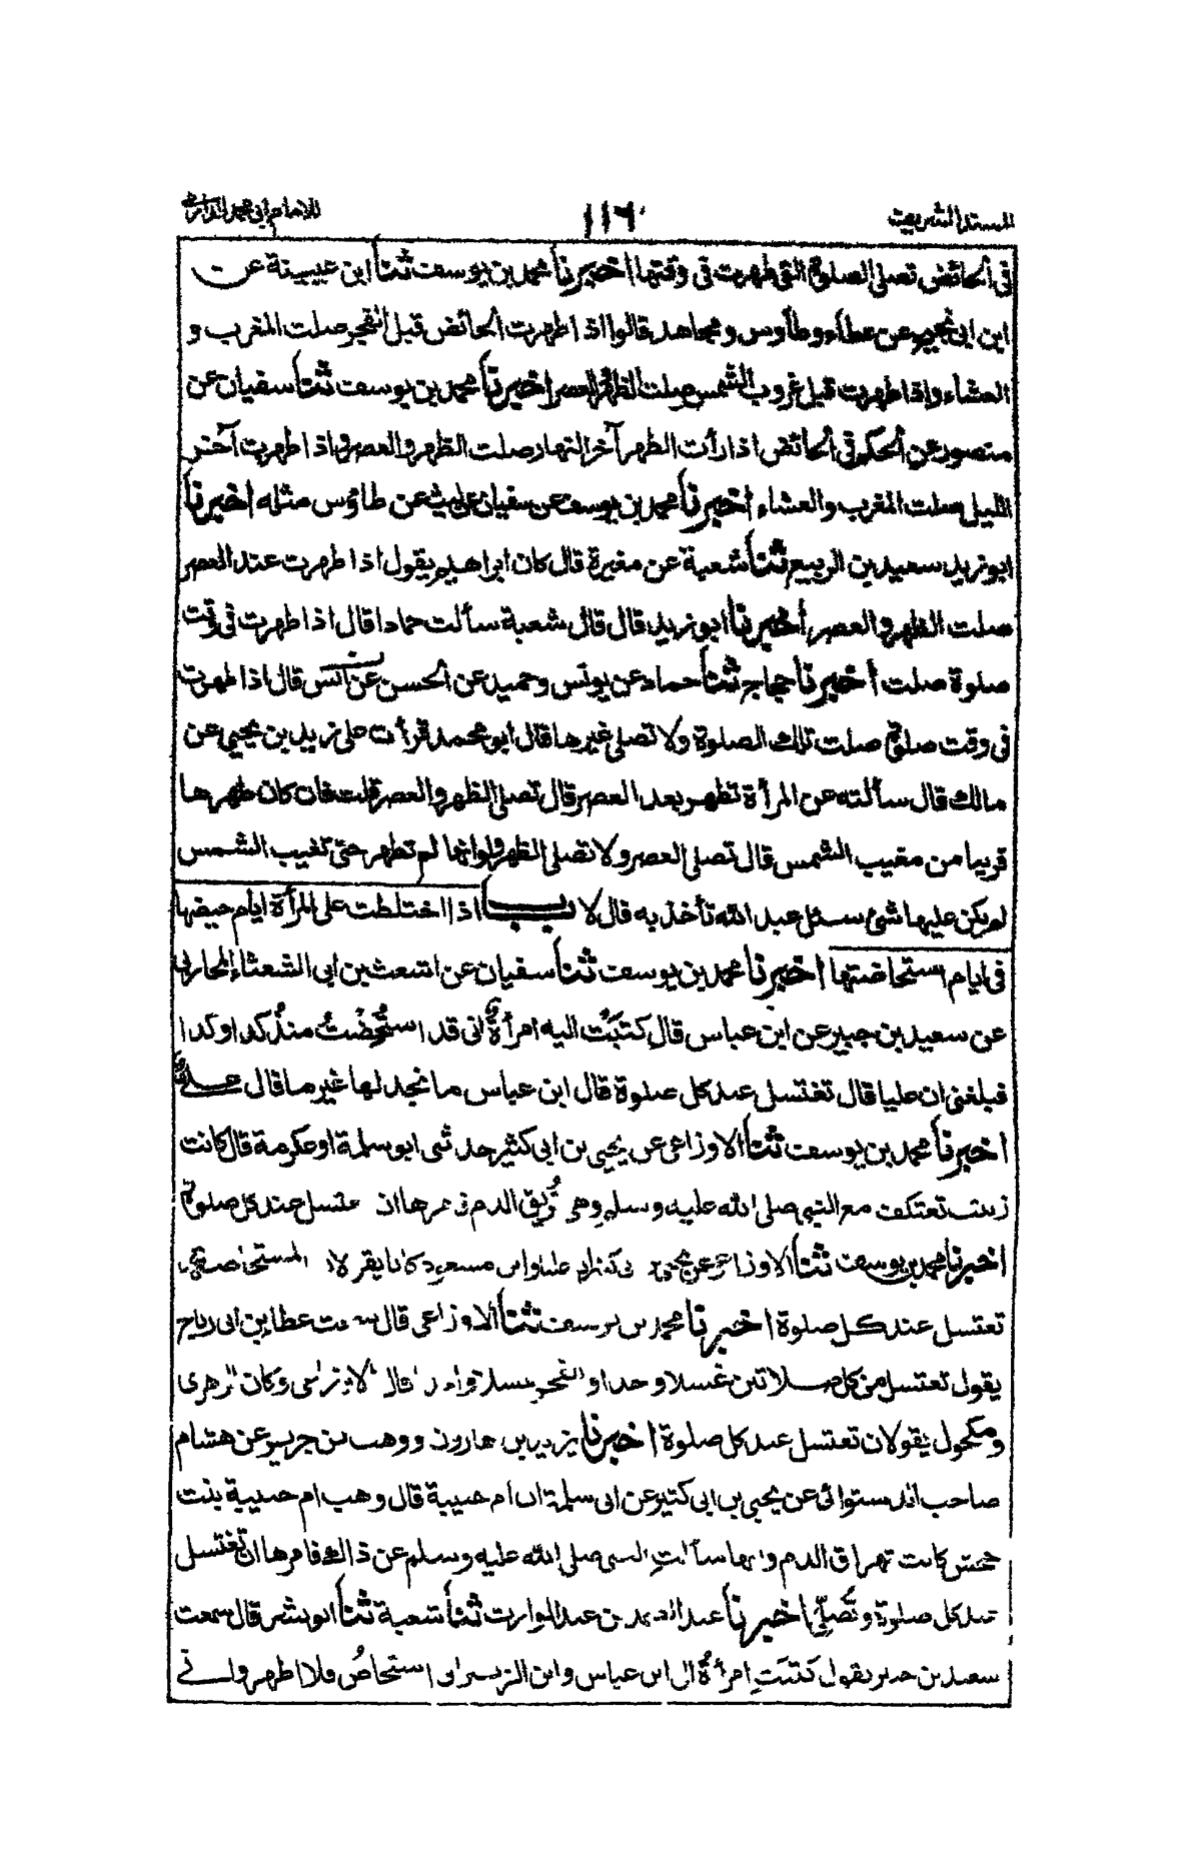 المسند الشريف
١١٦
للامام ابي محمد الدارمي
في الحائض تصلي الصلوة التي طهرت في وقتها اخبرنا محمد بن يوسف ثنا ابن عيينة عن
ابن ابي نجيح عن عطاء وطاؤس ومجاهد قالوا اذا طهرت الحائض قبل الفجر صلت المغرب و
العشاء واذا طهرت قبل غروب الشمس صلت الظهر والعصر اخبرنا محمد بن يوسف ثنا سفيان عن
منصور عن الحكم في الحائض اذا رأت الطهر آخر النهار صلت الظهر والعصر واذا طهرت آخر
الليل صلت المغرب والعشاء اخبرنا محمد بن يوسف عن سفيان عن ليث عن طاؤس مثله اخبرنا
ابو زيد سعيد بن الربيع ثنا شعبة عن مغيرة قال كان ابراهيم يقول اذا طهرت عند العصر
صلت الظهر والعصر اخبرنا ابو زيد قال قال شعبة سألت حمادا قال اذا طهرت في وقت
صلوة صلت اخبرنا حجاج ثنا حماد عن يونس وحميد عن الحسن عن انس قال اذا طهرت
في وقت صلوة صلت تلك الصلوة ولا تصلي غيرها قال ابو محمد قرأت على زيد بن يحيى عن
مالك قال سألته عن المرأة تطهر بعد العصر قال تصلي الظهر والعصر قلت فان كان طهرها
قريبا من مغيب الشمس قال تصلي العصر ولا تصلي الظهر ولو انها لم تطهر حتى تغيب الشمس
لم يكن عليها شئ سئل عبد الله تأخذ به قال لا باب اذا اختلطت على المرأة ايام حيضها
في ايام استحاضتها اخبرنا محمد بن يوسف ثنا سفيان عن اشعث بن ابي الشعثاء المحاربي
عن سعيد بن جبير عن ابن عباس قال كتبَتْ اليه امرأةٌ اني قد استُحِضْتُ منذُ كذا وكذا
فبلغني ان عليا قال تغتسل عند كل صلوة قال ابن عباس ما نجد لها غير ما قال علي
اخبرنا محمد بن يوسف ثنا الاوزاعي عن يحيى بن ابي كثير حدثني ابو سلمة او عكرمة قال كانت
زينب تعتكف مع النبي صلى الله عليه وسلم وهي تُريق الدم فامرها ان تغتسل عند كل صلوة
اخبرنا محمد بن يوسف ثنا الاوزاعي عن يحيى بن كثير ان عليا وابن مسعود كانا يقولان المستحاضة
تغتسل عند كل صلوة اخبرنا محمد بن يوسف ثنا الاوزاعي قال سمعت عطاء بن ابي رباح
يقول تغتسل من كل صلاتين غسلا وحدا وللفجر غسلا واحدا قال الاوزاعي وكان الزهري
ومكحول يقولان تغتسل عند كل صلوة اخبرنا يزيد بن هارون ووهب بن جرير عن هشام
صاحب الدستوائي عن يحيى بن ابي كثير عن ابي سلمة ان ام حبيبة قال وهب ام حبيبة بنت
جحش كانت تهراق الدم وانها سألتِ النبي صلى الله عليه وسلم عن ذالك فامرها ان تغتسل
عند كل صلوة وتُصلّي اخبرنا عبد الصمد بن عبد الوارث ثنا شعبة ثنا ابو بشر قال سمعت
سعيد بن جبير يقول كتبَتِ امرأةٌ الى ابن عباس وابن الزبير اني استحاضُ فلا اطهر واني